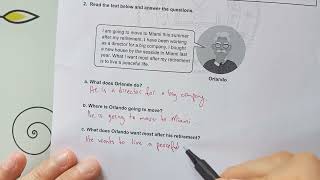 2. Read the text below and answer the questions.
I am going to move to Miami this summer
after my retirement. I have been working
as a director for a big company. I bought
a new house by the seaside in Miami last
year. What I want most after my retirement
is to live a peaceful life.
Orlando
a. What does Orlando do?
He is a director for a big company.
b. Where is Orlando going to move?
He is going to move to Miami
c. What does Orlando want most after his retirement?
He wants to live a peaceful